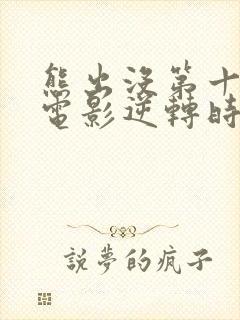 熊出沒第十
電影逆轉時
說夢的瘋子